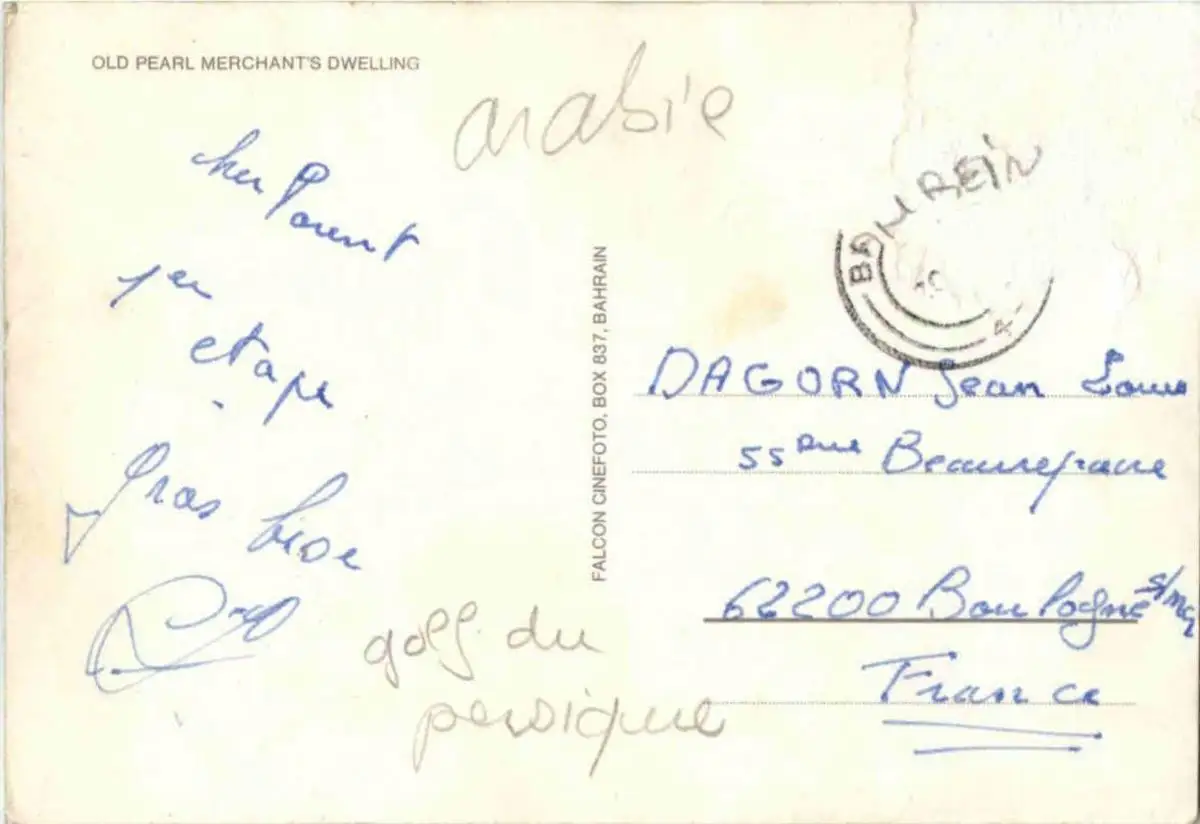 OLD PEARL MERCHANT'S DWELLING
arabie
cher Parent
1er
etape
Gros bise
golf du
persique
FALCON CINEFOTO, BOX 837, BAHRAIN
BAHREIN
DAGORN Jean Louis
55 Rue Beaurepaire
62200 Boulogne s/mer
France